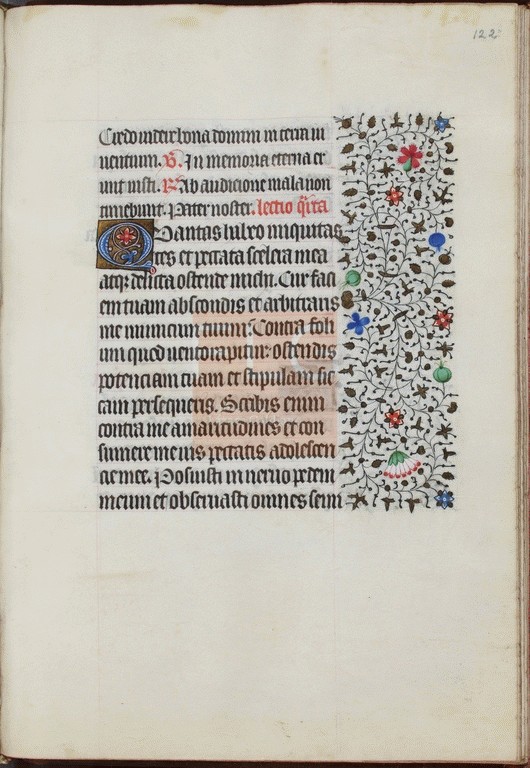 122
Credo videre bona domini in terra vi
uentium. V. In memoria eterna er
unt iusti. R. Ab audicione mala non
timebunt. Pater noster. lectio q̃rta
Quantas habeo iniquitas
tes et peccata scelera mea
atq; delicta ostende michi. Cur faci
em tuam abscondis et arbitraris
me inimicum tuum. Contra foli
um quod uento rapitur ostendis
potenciam tuam et stipulam sic
cam persequeris. Scribis enim
contra me amaritudines et con
sumere me uis peccatis adolescen
cie mee. Posuisti in neruo pedem
meum et obseruasti omnes semi